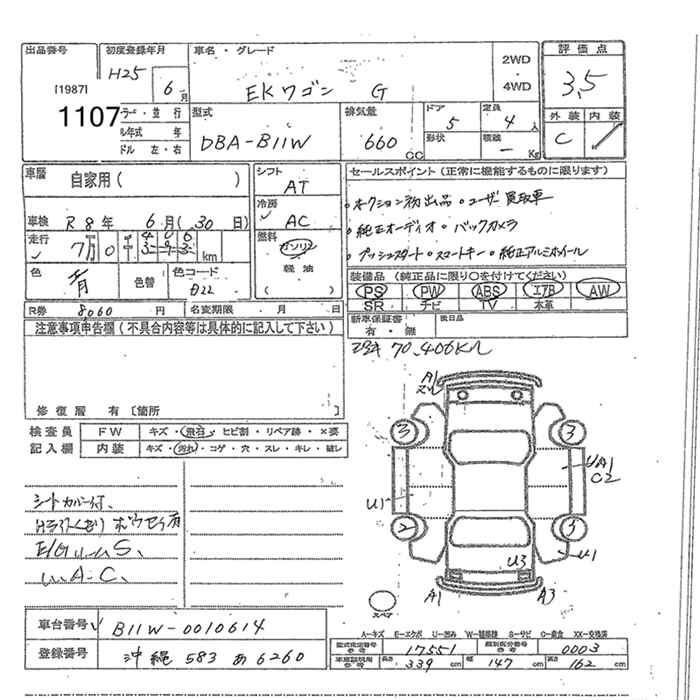 出品番号 初度登録年月 車名・グレード 2WD 評価点
[1987] H25 6月 EKワゴン G ・4WD 3.5
1107 カラー・並 行 型式 排気量 ドア 定員 外装 内装
年式 年 DBA-B11W 660 CC 5 4人 C
ドル 左・右 形状 積載 - Kg
車歴 自家用( ) シフト AT セールスポイント(正常に機能するものに限ります)
冷房 AC ・オークション初出品・ユーザー買取車
車検 R8年 6月(30日) ・純正オーディオ・バックカメラ
走行 7万0千 km 燃料 ガソリン ・プッシュスタート・スマートキー・純正アルミホイール
軽油
色 青 色替 色コード D22 ( ) 装備品(純正品に限り○を付けてください)
PS PW ABS エアB AW
SR ナビ TV 本革
R券 8,060 円 名変期限 月 日 新車保証書 後日品
有・無
注意事項申告欄(不具合内容等は具体的に記入して下さい)
70,406KM
修復歴 有 [箇所 ]
検査員 FW キズ・飛石・ヒビ割・リペア跡・×要
記入欄 内装 キズ・汚れ・コゲ・穴・スレ・キレ・破レ
A1
3 3
UA1
C2
U1
2 3
U3 U1
A1 A3
スペア
シートカバー付、
E/Gルーム S、
A・C、
A-キズ E-エクボ U-凹み W-補修跡 S-サビ C-腐食 XX-交換済
車台番号 B11W-0010614
型式指定番号 17551 類別区分番号 0003
登録番号 沖縄 583 あ 6260
長さ 339 cm 幅 147 cm 高さ 162 cm